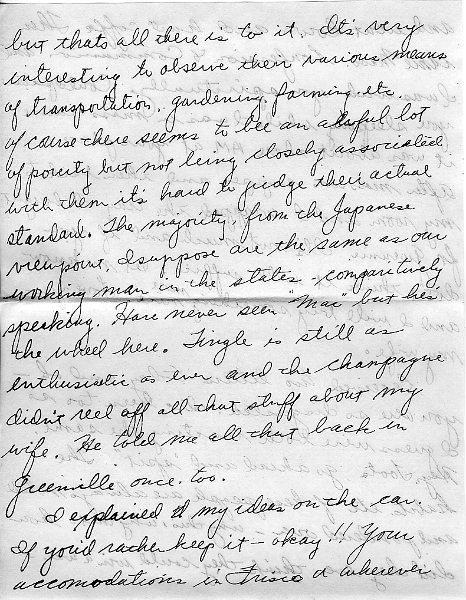 but thats all there is to it. It's very
interesting to observe their various means
of transportation, gardening, farming, etc.
Of course there seems to bee an awful lot
of poverity but not being closely associated
with them it's hard to judge their actual
standard. The majority, from the Japanese
viewpoint, I suppose are the same as our
working man in the states - comparitively
speaking. Have never seen "Mac" but he's
the wheel here. Tingle is still as
enthusiastic as ever and the champagne
didn't reel off all that stuff about my
wife. He told me all that back in
Greenville once, too.
I explained my ideas on the car.
If you'd rather keep it - okay!! Your
accomodations in Frisco or wherever